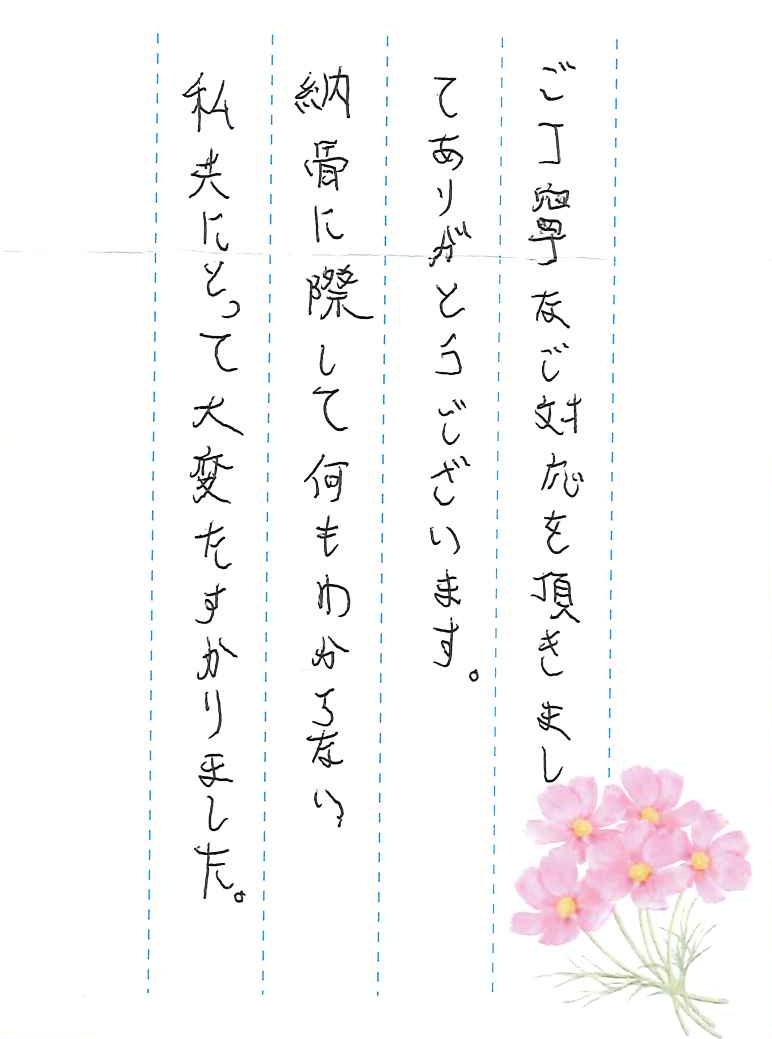 ご丁寧なご対応を頂きまし
てありがとうございます。
納骨に際して何もわからない
私共にとって大変たすかりました。